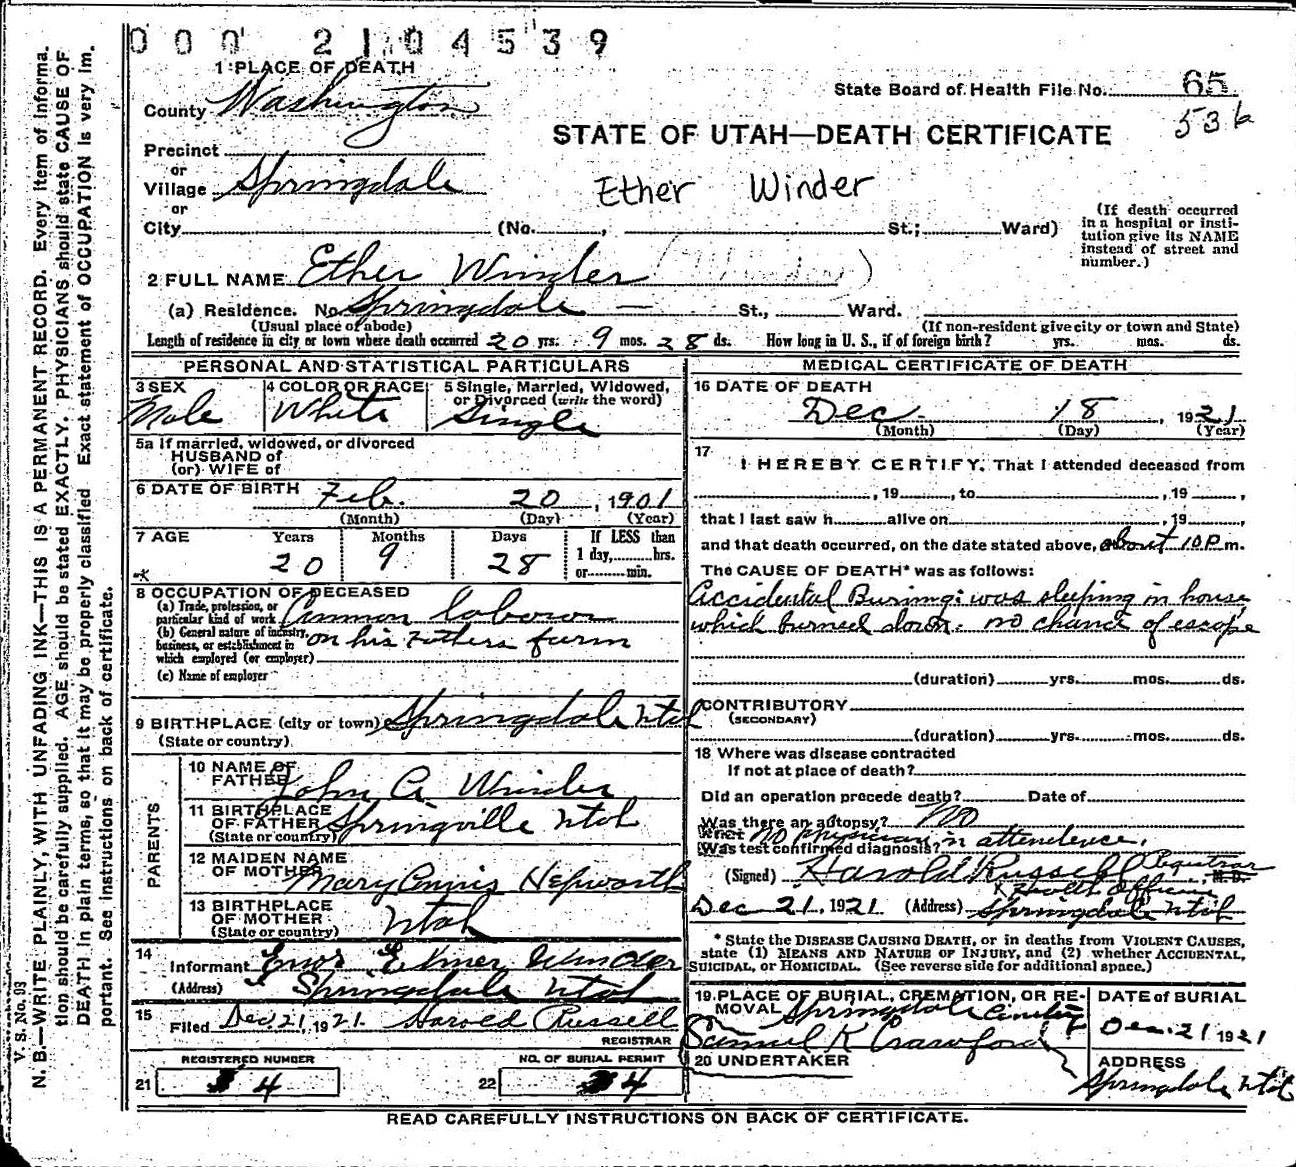 000 2104539
1 PLACE OF DEATH
State Board of Health File No. 65
536
County Washington
STATE OF UTAH—DEATH CERTIFICATE
Precinct
or
Village Springdale
Ether Winder
or
City (No. , St.; Ward)
(If death occurred in a hospital or institution give its NAME instead of street and number.)
2 FULL NAME Ether Winder
(a) Residence. No. Springdale — St., Ward.
(Usual place of abode) (If non-resident give city or town and State)
Length of residence in city or town where death occurred 20 yrs. 9 mos. 28 ds. How long in U. S., if of foreign birth? yrs. mos. ds.
PERSONAL AND STATISTICAL PARTICULARS
3 SEX 4 COLOR OR RACE 5 Single, Married, Widowed, or Divorced (write the word)
Male White Single
5a If married, widowed, or divorced
HUSBAND of
(or) WIFE of
6 DATE OF BIRTH Feb. 20, 1901
(Month) (Day) (Year)
7 AGE Years Months Days If LESS than
20 9 28 1 day, hrs.
or min.
8 OCCUPATION OF DECEASED
(a) Trade, profession, or particular kind of work Common laborer
(b) General nature of industry, business, or establishment in which employed (or employer) on his Fathers farm
(c) Name of employer
9 BIRTHPLACE (city or town) Springdale Utah
(State or country)
PARENTS
10 NAME OF FATHER John A Winder
11 BIRTHPLACE OF FATHER (State or country) Springville Utah
12 MAIDEN NAME OF MOTHER Mary Hepworth
13 BIRTHPLACE OF MOTHER (State or country) Utah
14
Informant Elmer Winder
(Address) Springdale Utah
15 Filed Dec. 21, 1921. Harold Russell
REGISTRAR
REGISTERED NUMBER NO. OF BURIAL PERMIT
21 4 22 4
MEDICAL CERTIFICATE OF DEATH
16 DATE OF DEATH
Dec 18, 1921
(Month) (Day) (Year)
17
I HEREBY CERTIFY, That I attended deceased from
, 19 , to , 19 ,
that I last saw h alive on , 19 ,
and that death occurred, on the date stated above, about 10 P m.
The CAUSE OF DEATH* was as follows:
Accidental Burning: was sleeping in house
which burned down. no chance of escape
(duration) yrs. mos. ds.
CONTRIBUTORY
(SECONDARY)
(duration) yrs. mos. ds.
18 Where was disease contracted
If not at place of death?
Did an operation precede death? Date of
Was there an autopsy? No
What test confirmed diagnosis? No physician in attendence.
(Signed) Harold Russell Registrar M. D.
& Health Officer
Dec 21, 1921 (Address) Springdale Utah
* State the DISEASE CAUSING DEATH, or in deaths from VIOLENT CAUSES,
state (1) MEANS AND NATURE OF INJURY, and (2) whether ACCIDENTAL,
SUICIDAL, or HOMICIDAL. (See reverse side for additional space.)
19 PLACE OF BURIAL, CREMATION, OR REMOVAL Springdale Cemetery
DATE of BURIAL
Dec. 21 1921
Samuel K Crawford
20 UNDERTAKER
ADDRESS
Springdale Utah
READ CAREFULLY INSTRUCTIONS ON BACK OF CERTIFICATE.
V. S. No. 98
N. B.—WRITE PLAINLY, WITH UNFADING INK—THIS IS A PERMANENT RECORD. Every item of information should be carefully supplied. AGE should be stated EXACTLY. PHYSICIANS should state CAUSE OF DEATH in plain terms, so that it may be properly classified. Exact statement of OCCUPATION is very important. See instructions on back of certificate.